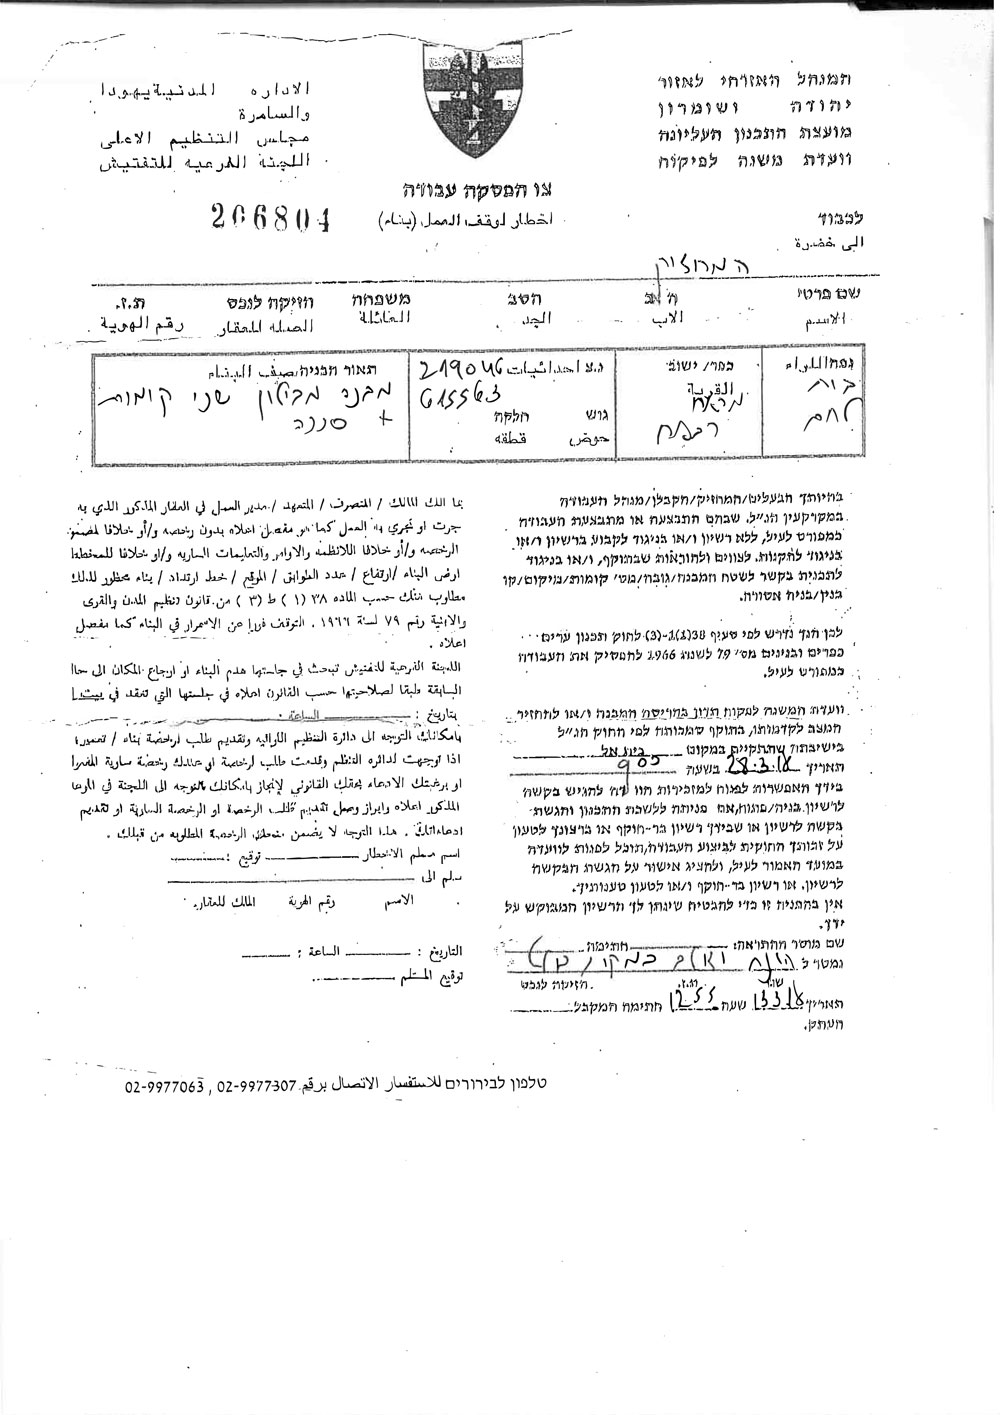 המנהל האזרחי לאזור
יהודה ושומרון
מועצת התכנון העליונה
וועדת משנה לפיקוח
الاداره المدنية يهودا
والسامرة
مجلس التنظيم الاعلى
اللجنة الفرعيه للتفتيش
צו הפסקה עבודה
اخطار لوقف العمل (بناء)
206804
לכבוד
الى حضرة
המחזיק
שם פרטי ה אב הסב משפחה חזיקה לנכס ת.ז.
الاسم الاب الجد العائلة الصله للعقار رقم الهوية
נפה اللواء
בית
לחם
כפר/ ישוב
القرية
נ.צ احداثيات 219046
615563
גוש חלקה
حوض قطقه
תאור הבניה صيف البناء
מבנה מבטון שני קומות
+
בהיותך הבעלים/המחזיק/הקבלן/מנהל העבודה
במקרקעין הנ"ל. שבהם התבצעה או מתבצעת העבודה
כמפורט לעיל, ללא רשיון ו/או בניגוד לקבוע ברשיון ו/או
בניגוד לתקנות, לצווים ולהוראות שבתוקף, ו/או בניגוד
לתכנית בקשר לשטח המבנה/גובה/מס' קומות/מיקום/קו
בנין/בניה אסורה.
לכן הנך נדרש לפי סעיף 38(1)ג-(3) לחוק תכנון ערים
כפרים ובנינים מס' 79 לשנת 1966 להפסיק את העבודה
כמפורט לעיל.
וועדת המשנה לפקוח תדון בהריסת המבנה ו/או להחזיר
המצב לקדמותו, בתוקף סמכותה לפי החוק הנ"ל
בישיבתה שתתקיים במקום בית אל
תאריך 28.3.18 בשעה 900
בידך האפשרות לפנות למזכירות הוועדה להגיש בקשה
לרשיון בניה/פתוח, אם פניתה ללשכת התכנון והגשת
בקשה לרשיון או שבידך רשיון בר-תוקף או ברצונך לטעון
על זכותך החוקית לביצוע העבודה, תוכל לפנות לוועדה
במועד האמור לעיל, ולהציג אישור על הגשת הבקשה
לרשיון. או רשיון בר-תוקף ו/או לטעון טענותיך.
אין בהפניה זו כדי להבטיח שינתן לך הרשיון המבוקש על
ידך.
שם מוסר ההתראה: חתימה
נמסר ל
שם ת.ז. חזיקה לנכס
תאריך 13.3.18 שעה 1255 חתימת המקבל
העתק.
بما انك المالك / المتصرف / المتعهد / مدير العمل في العقار المذكور الذي به
جرت او تجري به العمل كما هو مفصل اعلاه بدون رخصه و/أو خلافا لمضمون
الرخصه و/أو خلافا للانظمه والاوامر والتعليمات الساريه و/او خلافا للمخطط
ارض البناء /ارتفاع / عدد الطوابق / الموقع / خط ارتداد / بناء محظور لذلك
مطلوب منك حسب الماده ٣٨ (١) ط (٣) من قانون تنظيم المدن والقرى
والابنية رقم ٧٩ لسنة ١٩٦٦ . التوقف فورا عن الاسمرار في البناء كما مفصل
اعلاه .
اللجنة الفرعية للتفتيش تبحث في جلستها هدم البناء او ارجاع المكان الى حاا
السابقة طبقا لصلاحيتها حسب القانون اعلاه في جلستها التي تنعقد في
بتاريخ : الساعة :
بامكانك التوجه الى دائرة التنظيم اللوائيه وتقديم طلب لرخصة بناء / تعمير
اذا توجهت لدائره التنظم وقدمت طلب لرخصة او عندك رخصة سارية المفعول
او برغبتك الادعاء بحقك القانوني لإنجاز بامكانك التوجه الى اللجنة في
المذكور اعلاه وابراز وصل تقديم طلب الرخصة او الرخصة السارية او تقديم
ادعاءاتك . هذا التوجه لا يضمن منحك الرخصة المطلوبه من قبلك .
اسم مسلم الاخطار توقيع :
سلم الى
الاسم رقم الهوية المالك للعقار
التاريخ : الساعة :
توقيع المستلم
טלפון לבירורים للاستفسار الاتصال برقم 02-9977307 , 02-9977063